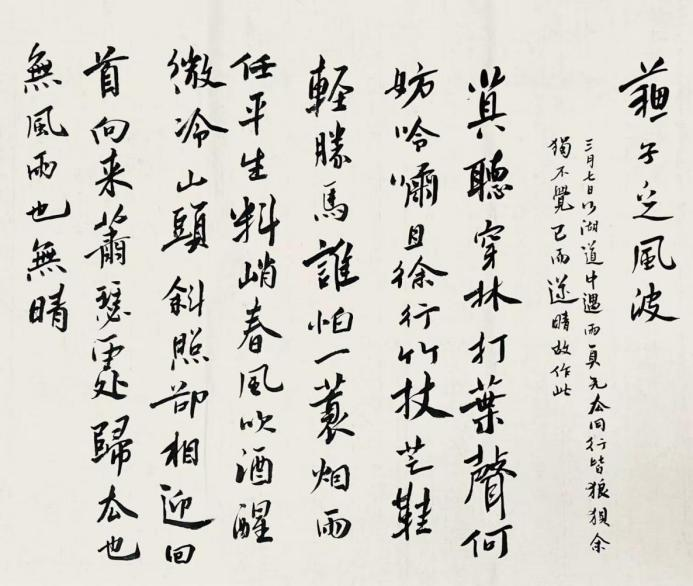 蘓子定風波
三月七日沙湖道中遇雨具先去同行皆狼狽余
獨不覺已而遂晴故作此
莫聽穿林打葉聲何
妨吟嘯且徐行竹杖芒鞋
輕勝馬誰怕一蓑烟雨
任平生料峭春風吹酒醒
微冷山頭斜照却相迎回
首向来蕭瑟處歸去也
無風雨也無晴